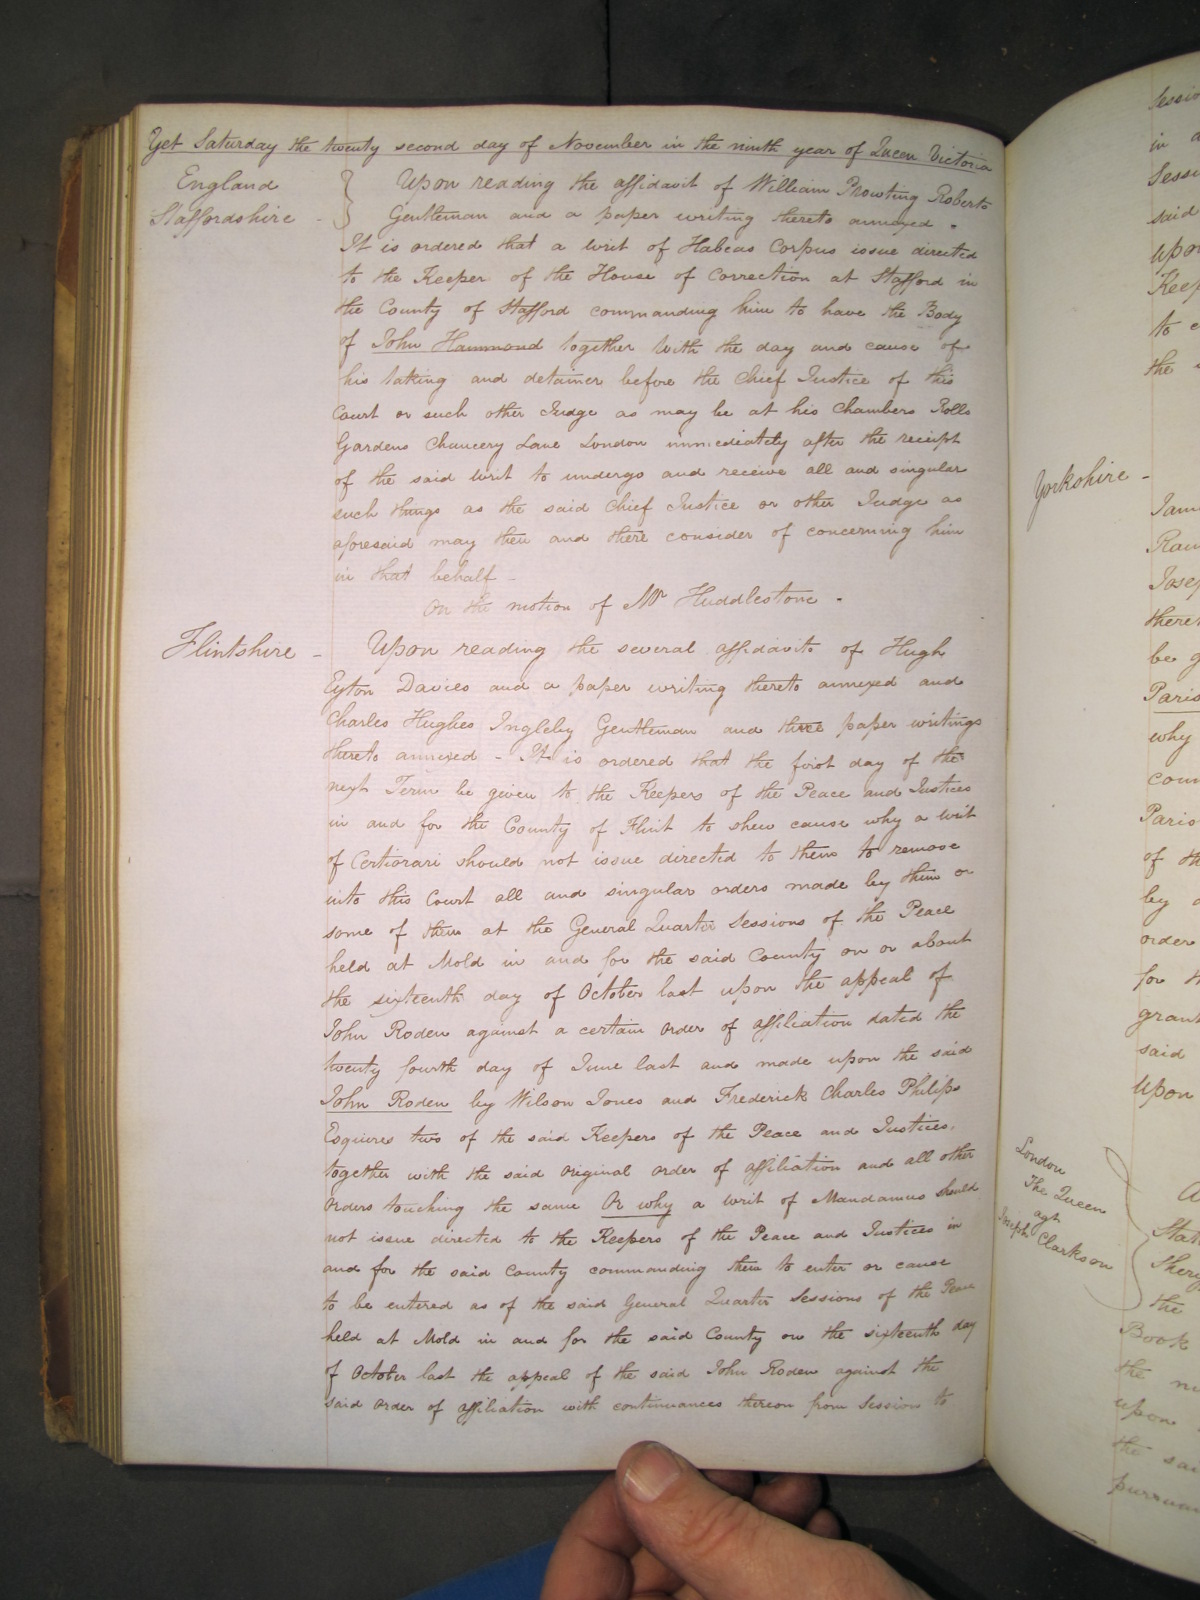 Yet Saturday the twenty second day of November in the ninth year of Queen Victoria
England
Staffordshire -
Upon reading the affidavit of William Prowting Roberts
Gentleman and a paper writing thereto annexed.
It is ordered that a writ of Habeas Corpus issue directed
to the Keeper of the House of Correction at Stafford in
the County of Stafford commanding him to have the Body
of John Hammond together with the day and cause of
his taking and detainer before the Chief Justice of this
Court or such other Judge as may be at his Chambers Rolls
Gardens Chancery Lane London immediately after the receipt
of the said writ to undergo and receive all and singular
such things as the said Chief Justice or other Judge as
aforesaid may then and there consider of concerning him
in that behalf -
On the motion of Mr Huddlestone.
Flintshire -
Upon reading the several affidavits of Hugh
Eyton Davies and a paper writing thereto annexed and
Charles Hughes Ingleby Gentleman and three paper writings
thereto annexed - It is ordered that the first day of the
next Term be given to the Keepers of the Peace and Justices
in and for the County of Flint to shew cause why a writ
of Certiorari should not issue directed to them to remove
into this Court all and singular orders made by them or
some of them at the General Quarter Sessions of the Peace
held at Mold in and for the said County on or about
the sixteenth day of October last upon the appeal of
John Roden against a certain order of affiliation dated the
twenty fourth day of June last and made upon the said
John Roden by Wilson Jones and Frederick Charles Philips
Esquires two of the said Keepers of the Peace and Justices,
together with the said original order of affiliation and all other
orders touching the same Or why a writ of Mandamus should
not issue directed to the Keepers of the Peace and Justices in
and for the said County commanding them to enter or cause
to be entered as of the said General Quarter Sessions of the Peace
held at Mold in and for the said County on the sixteenth day
of October last the appeal of the said John Roden against the
said order of affiliation with continuances thereon from Session to
in
said
upon
to
the
Yorkshire -
be
why
Paris
of
by
order
for
grant
said
Upon
London
The Queen
agt
Joseph Clarkson
the
Book
the
upon
the